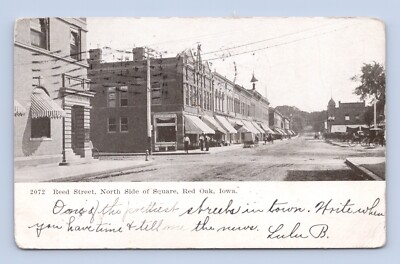 2672 Reed Street, North Side of Square, Red Oak, Iowa.
One of the prettiest streets in town. Write when
you have time & tell me the news. Lulu B.